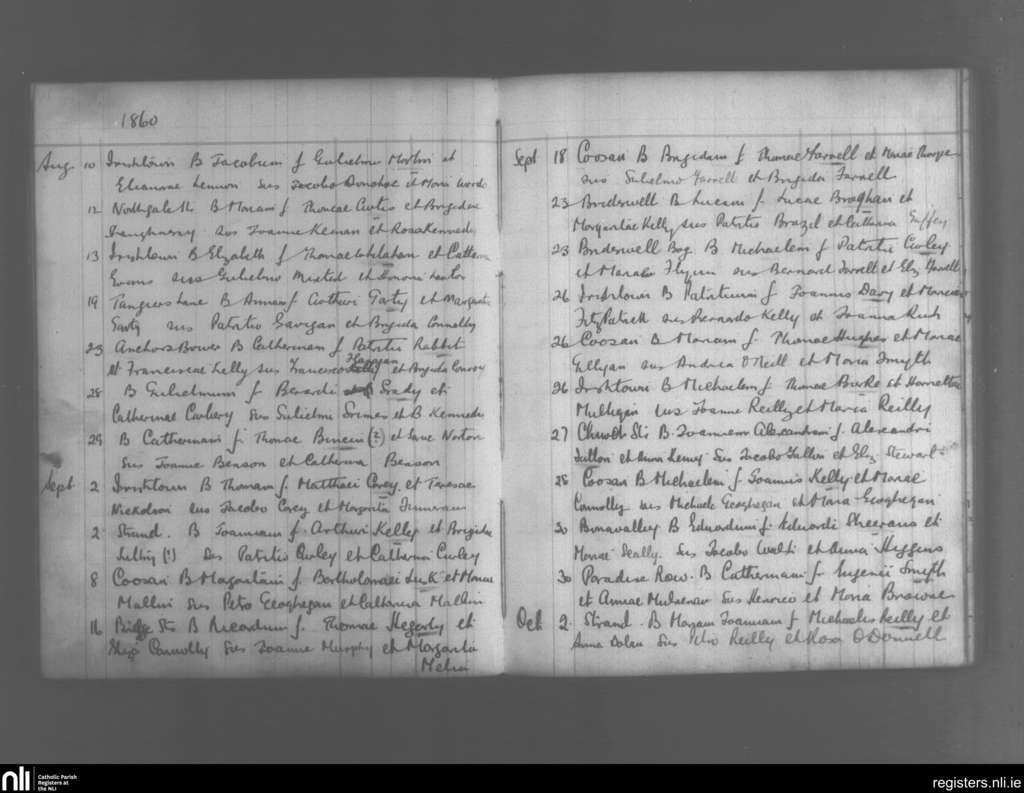 1860
Aug 10 Irishtown B Jacobum f Gulielmi Martin et
Eleanorae Lennon sus Jacobo Donohoe et Maria Ward
12 Northgate St B Mariam f Thomae Curtis et Brigidae
sus Joanne Keenan et Rosa Kennedy
13 Irishtown B Elizabeth f Thomae Whelahan et Cathern
Evans sus Gulielmo et Honora
19 Tangiers Lane B Annam f Arthuri Garty et Margarita
Garty sus Patritio Gavigan et Brigida Connolly
23 Anchors Bower B Catherinam f Patritii Rabbit
et Franciscae Lelly sus Francisco Flanagan et Brigida Conroy
28 B Gulielmum f Berardi Grady et
Catherinae Corbery sus Gulielmi Grimes et B Kennedy
29 B Catherinam f Thomae (?) et Jane Norton
sus Joanne Benson et Catherina Benson
Sept 2 Irishtown B Thomam f Matthaei Corey et Teresae
Nickolson sus Jacobo Corey et Margarita Finneran
2 Strand. B Joannam f. Arthuri Kelly et Brigidae
(?) Sus Patritio Curley et Catherina Curley
8 Coosan B Margaritam f. Bartholomaei et Mariae
Mallin sus Petro Geoghegan et Catherina Mallin
16 Bridge Ste B Ricardum f. Thomae Hegerty et
Eliza Connolly Sus Joanne Murphy et Margarita
Melia
Sept 18 Coosan B Brigidam f Thomae Farrell et Mariae Thorpe
sus Gulielmo Farrell et Brigida Farrell
23 Bridewell B Lucam f Lucae Broghan et
Margaritae Kelly sus Patritio Brazil et Catherina Guffey
23 Bridewell Bog B Michaelem f Patritii Curley
et Flynn sus Bernard Farrell et Eliz Farrell
26 Irishtown B Patritium f Joannis Davy et Mariae
FitzPatrick sus Bernardo Kelly et Joanna
26 Coosan B Mariam f. Thomae Hughes et Mariae
Gilligan sus Andrea O'Neill et Maria Smyth
26 Irishtown B Michaelem f Thomae Burke et Honoratae
Mulligan sus Joanne Reilly et Maria Reilly
27 Church Ste B. Joannem Alexandrum f. Alexandri
Fallon et Anna Kenny Sus Jacobo Fallon et Eliz Stewart
28 Coosan B Michaelem f Joannis Kelly et Mariae
Connolly sus Michaele Geoghegan et Maria Geoghegan
30 Bunavalley B Eduardum f. Eduardi Sheerans et
Mariae Scally. Sus Jacobo Walsh et Anna Higgins
30 Paradise Row. B Catherinam f. Eugenii Smyth
et Annae Sus Henrico et Maria Browne
Oct 2. Strand. B Mariam Joannam f Michaelis Reilly et
Anna Dolan Sus Reilly et Rosa O'Donnell
nli Catholic Parish
Registers at
the NLI
registers.nli.ie